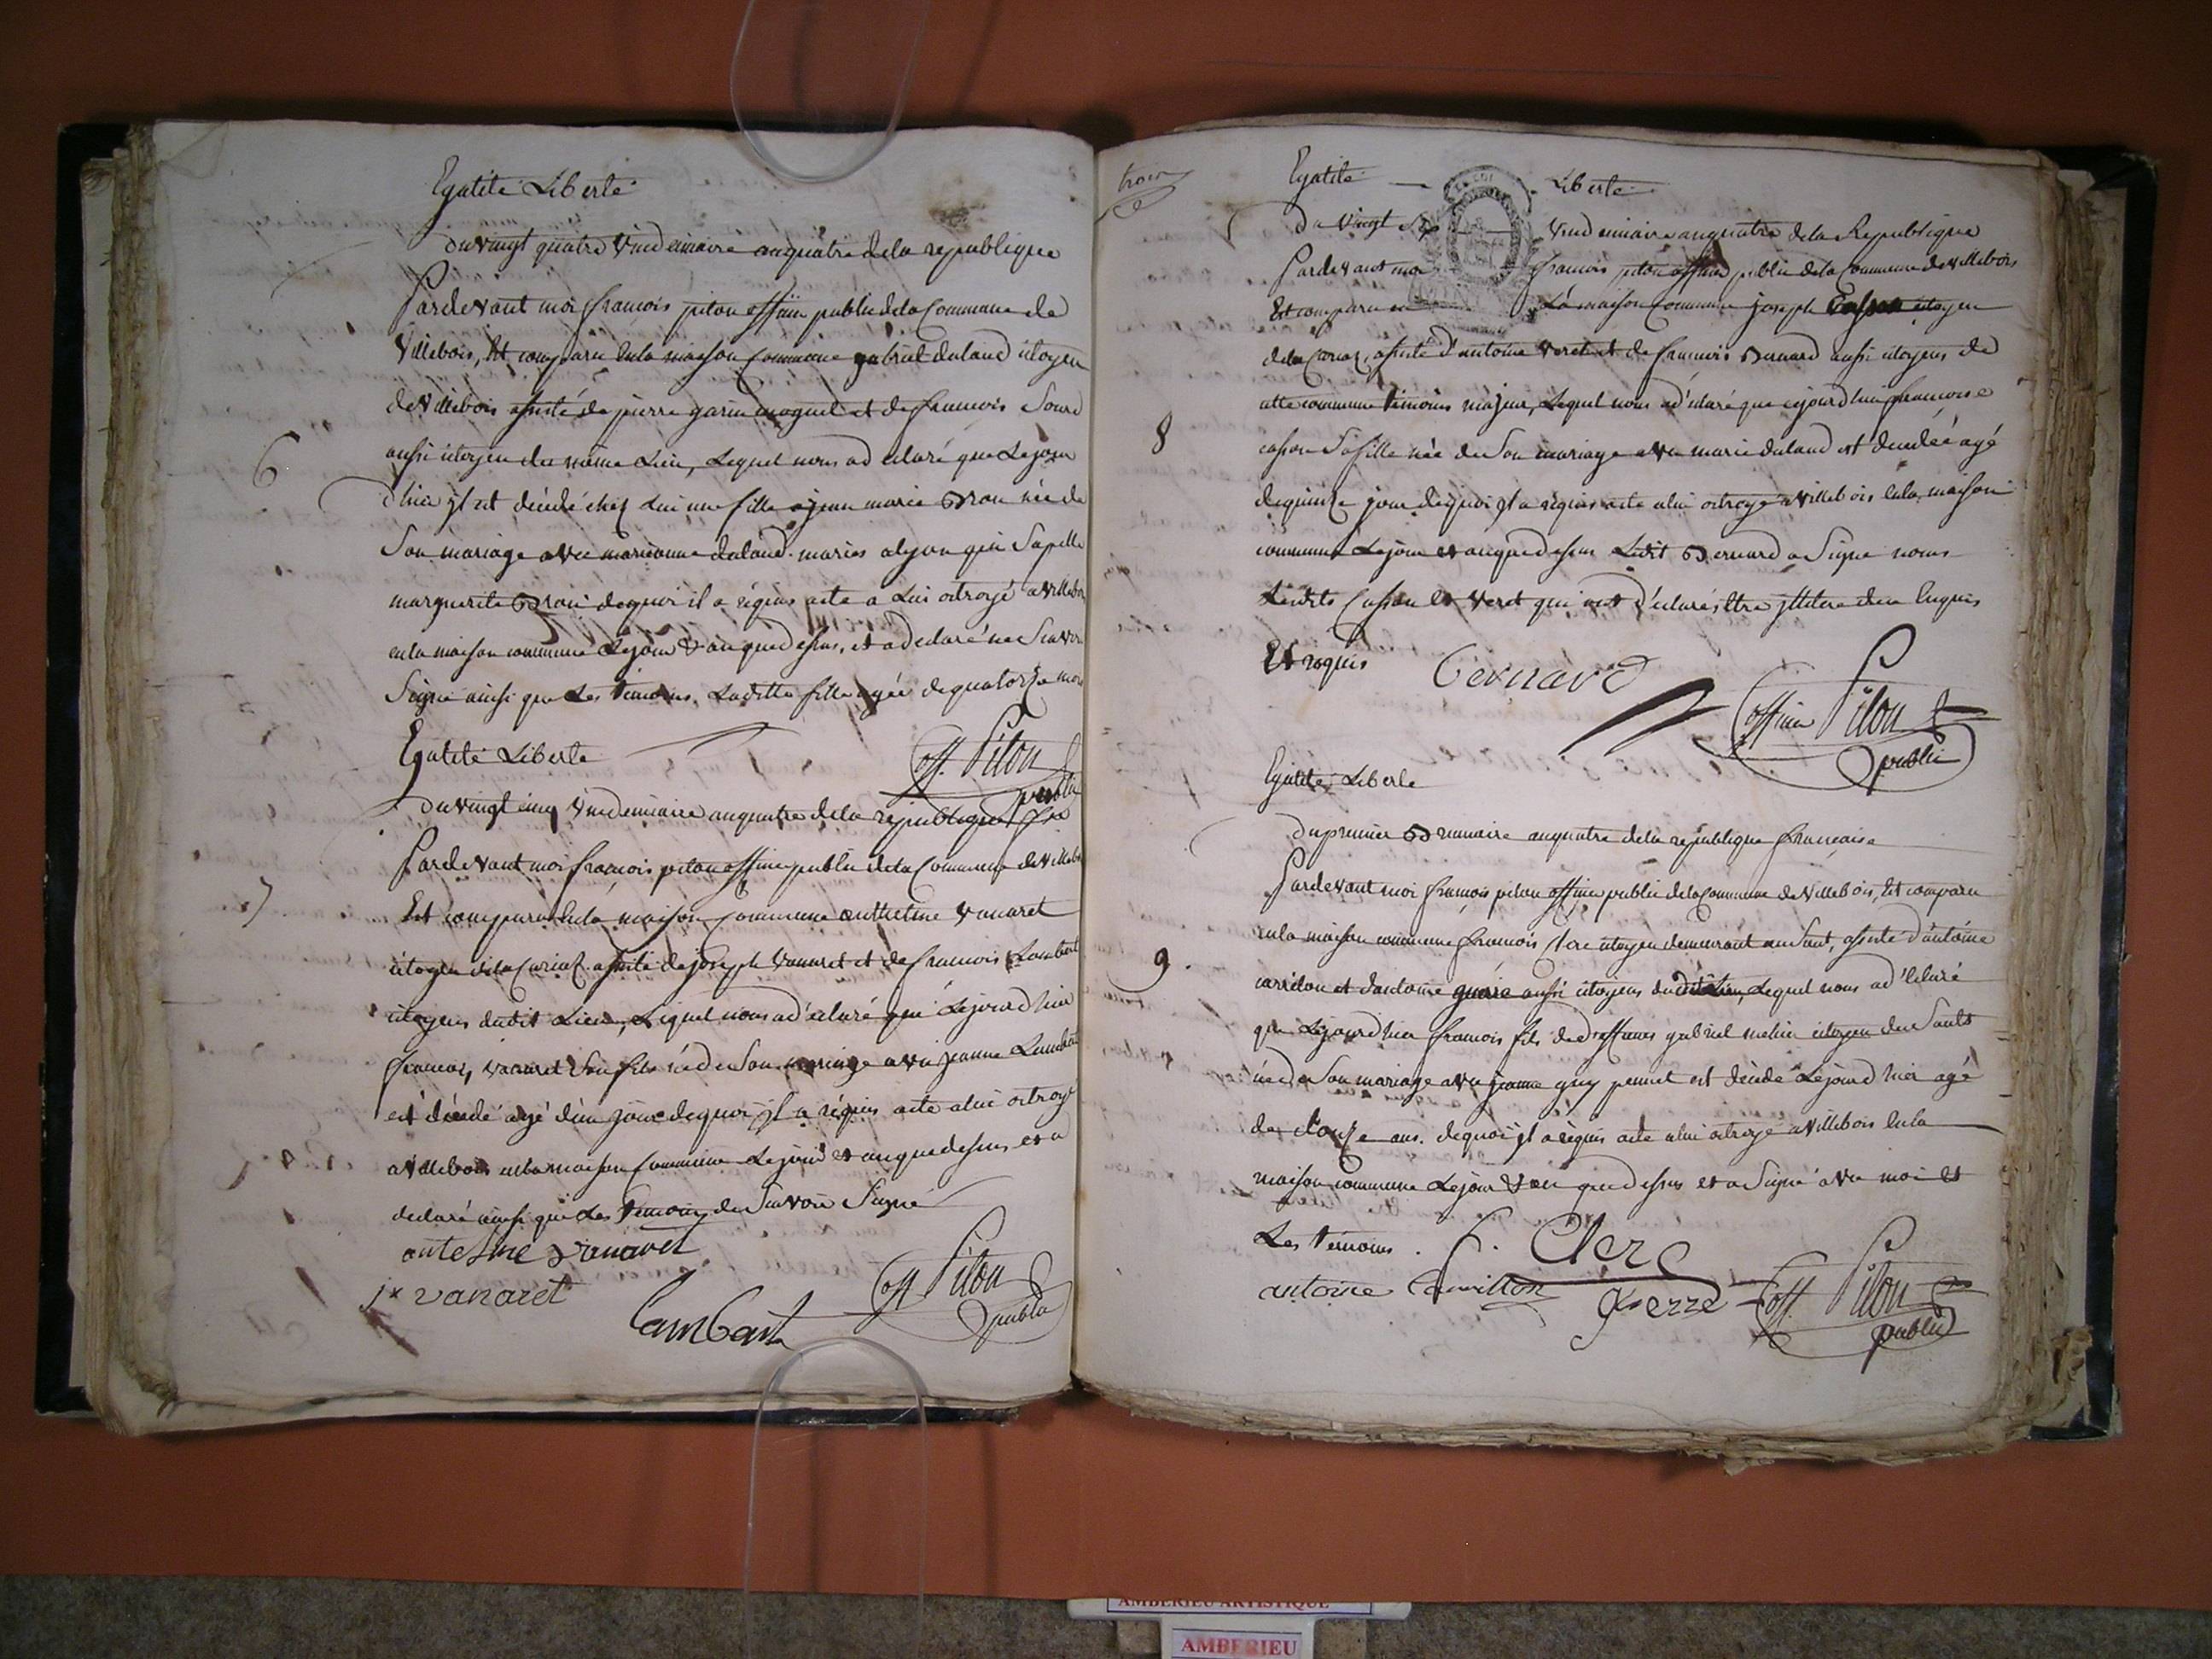 Egalité Liberté
du vingt quatre Vindemiaire an quatre dela republique
Pardevant moi francois piton officier public dela Commune de
Villebois, Est comparu En la maison Commune gabriel daland citoyen
de Villebois assisté de pierre garin et de francois Sourd
aussi citoyen du même Lieu, Lequel nous a déclaré que Le jour
d'hier il est décédé chez Lui une fille a jean marie née de
Son mariage avec marianne daland mariés alyon qui S'apelle
marguerite dequoi il a réquis acte a Lui octroyé a Villebois
en la maison commune Le jour & an que dessus, et a declaré ne Savoir
Signé ainsi que Les temoins. Laditte fille agée de quatorze mois
off. Piton
public
Egalité Liberté
du vingt cinq Vindemiaire an quatre dela republique
Pardevant moi francois piton officier public dela Commune de Villebois
Est comparu En la maison Commune anthelme Vanaret
citoyen assisté de joseph Vanaret et de francois Lambert
citoyens dudit Lieu, Lequel nous a déclaré que Le jourd'hier
francois vanaret Son fils né de Son mariage avec jeanne
est décédé agé d'un jour dequoi il a réquis acte a lui octroyé
a Villebois en la maison Commune Le jour et an que dessus, et a
declaré ainsi que Les temoins de Savoir Signé
antelme vanaret
jh vanaret
Lambert
off Piton
public
6
7
trois
Egalité Liberté
Du Vingt Vindemiaire an quatre dela Republique
Pardevant moi francois piton officier public dela Commune de Villebois
Est comparu La maison Commune joseph citoyen
assisté d'antoine Veret et de francois Bernard aussi citoyens de
cette commune temoins majeur, Lequel nous a déclaré que cejourd'hui francoise
casson Sa fille née de Son mariage avec marie daland est décédée agé
de quinze jour dequoi il a réquis acte a lui octroyé a Villebois En la maison
commune Le jour et an que dessus Ledit Bernard a Signé nous
Lesdits Casson Et Veret qui ont déclaré Etre de ce Enquis
Et requis
Bernard
officier Piton
public
Egalité Liberté
Du premier Brumaire an quatre dela republique francaise
Pardevant moi francois piton officier public dela Commune de Villebois, Est comparu
en la maison commune francois Clerc citoyen demeurant au Saut, assisté d'antoine
carrillon et d'antoine guerre aussi citoyens dudit Lieu, Lequel nous a déclaré
que Le jourd'hier francois fils de deffunt gabriel citoyen du Sault
né de Son mariage avec jeanne guy est décédé Le jourd'hier agé
de douze ans. dequoi il a réquis acte a lui octroyé a Villebois En la
maison commune Le jour & an que dessus et a Signé avec moi et
Les temoins.
f. Clerc
antoine Carrillon
guerre
off. Piton
public
8
9
AMBERIEU ARTISTIQUE
AMBERIEU